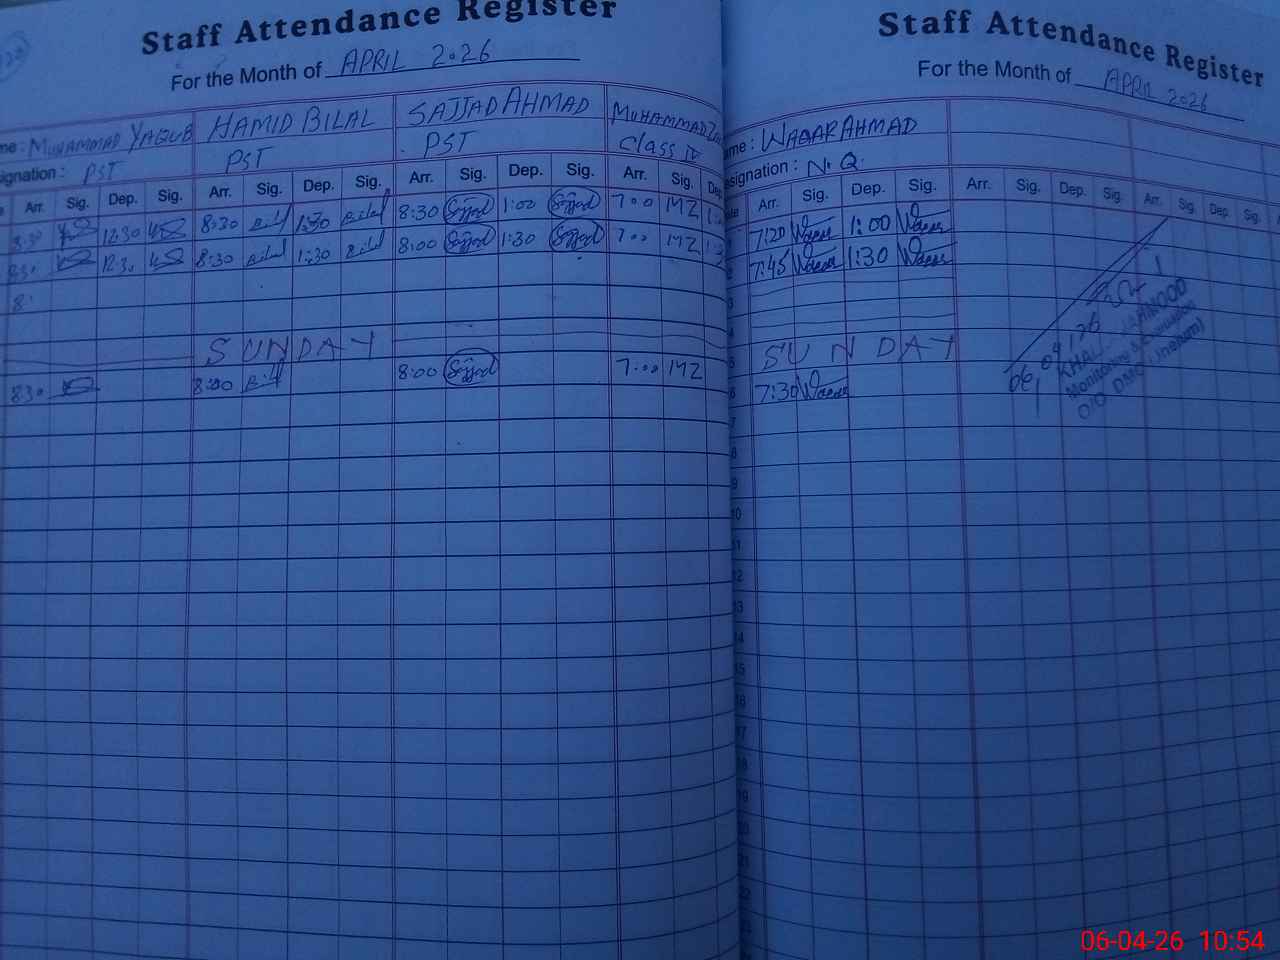 Staff Attendance Register
For the Month of APRIL 2026
me : MUHAMMAD YAQUB HAMID BILAL SAJJAD AHMAD MUHAMMAD
signation : PST PST PST Class IV
Arr. Sig. Dep. Sig. Arr. Sig. Dep. Sig. Arr. Sig. Dep. Sig. Arr. Sig. Dep
8:30 12:30 8:30 Bilal 1:30 Bilal 8:30 Sajjad 1:00 Sajjad 7:00 MZ
8:30 12:30 8:30 Bilal 1:30 Bilal 8:00 Sajjad 1:30 Sajjad 7:00 MZ
8:
SUNDAY
8:30 8:00 Sajjad 7:00 MZ
Staff Attendance Register
For the Month of APRIL 2026
me : WAQAR AHMAD
esignation : N.Q.
Arr. Sig. Dep. Sig. Arr. Sig. Dep. Sig. Arr. Sig. Dep. Sig.
7:20 Waqar 1:00 Waqar
2 7:45 Waqar 1:30 Waqar
3
4
5 SUNDAY
6 7:30 Waqar
7
8
9
10
11
12
13
14
15
16
17
18
19
20
21
22
06/04/26
Monitoring &
O/O DMO Jhelum)
06-04-26 10:54